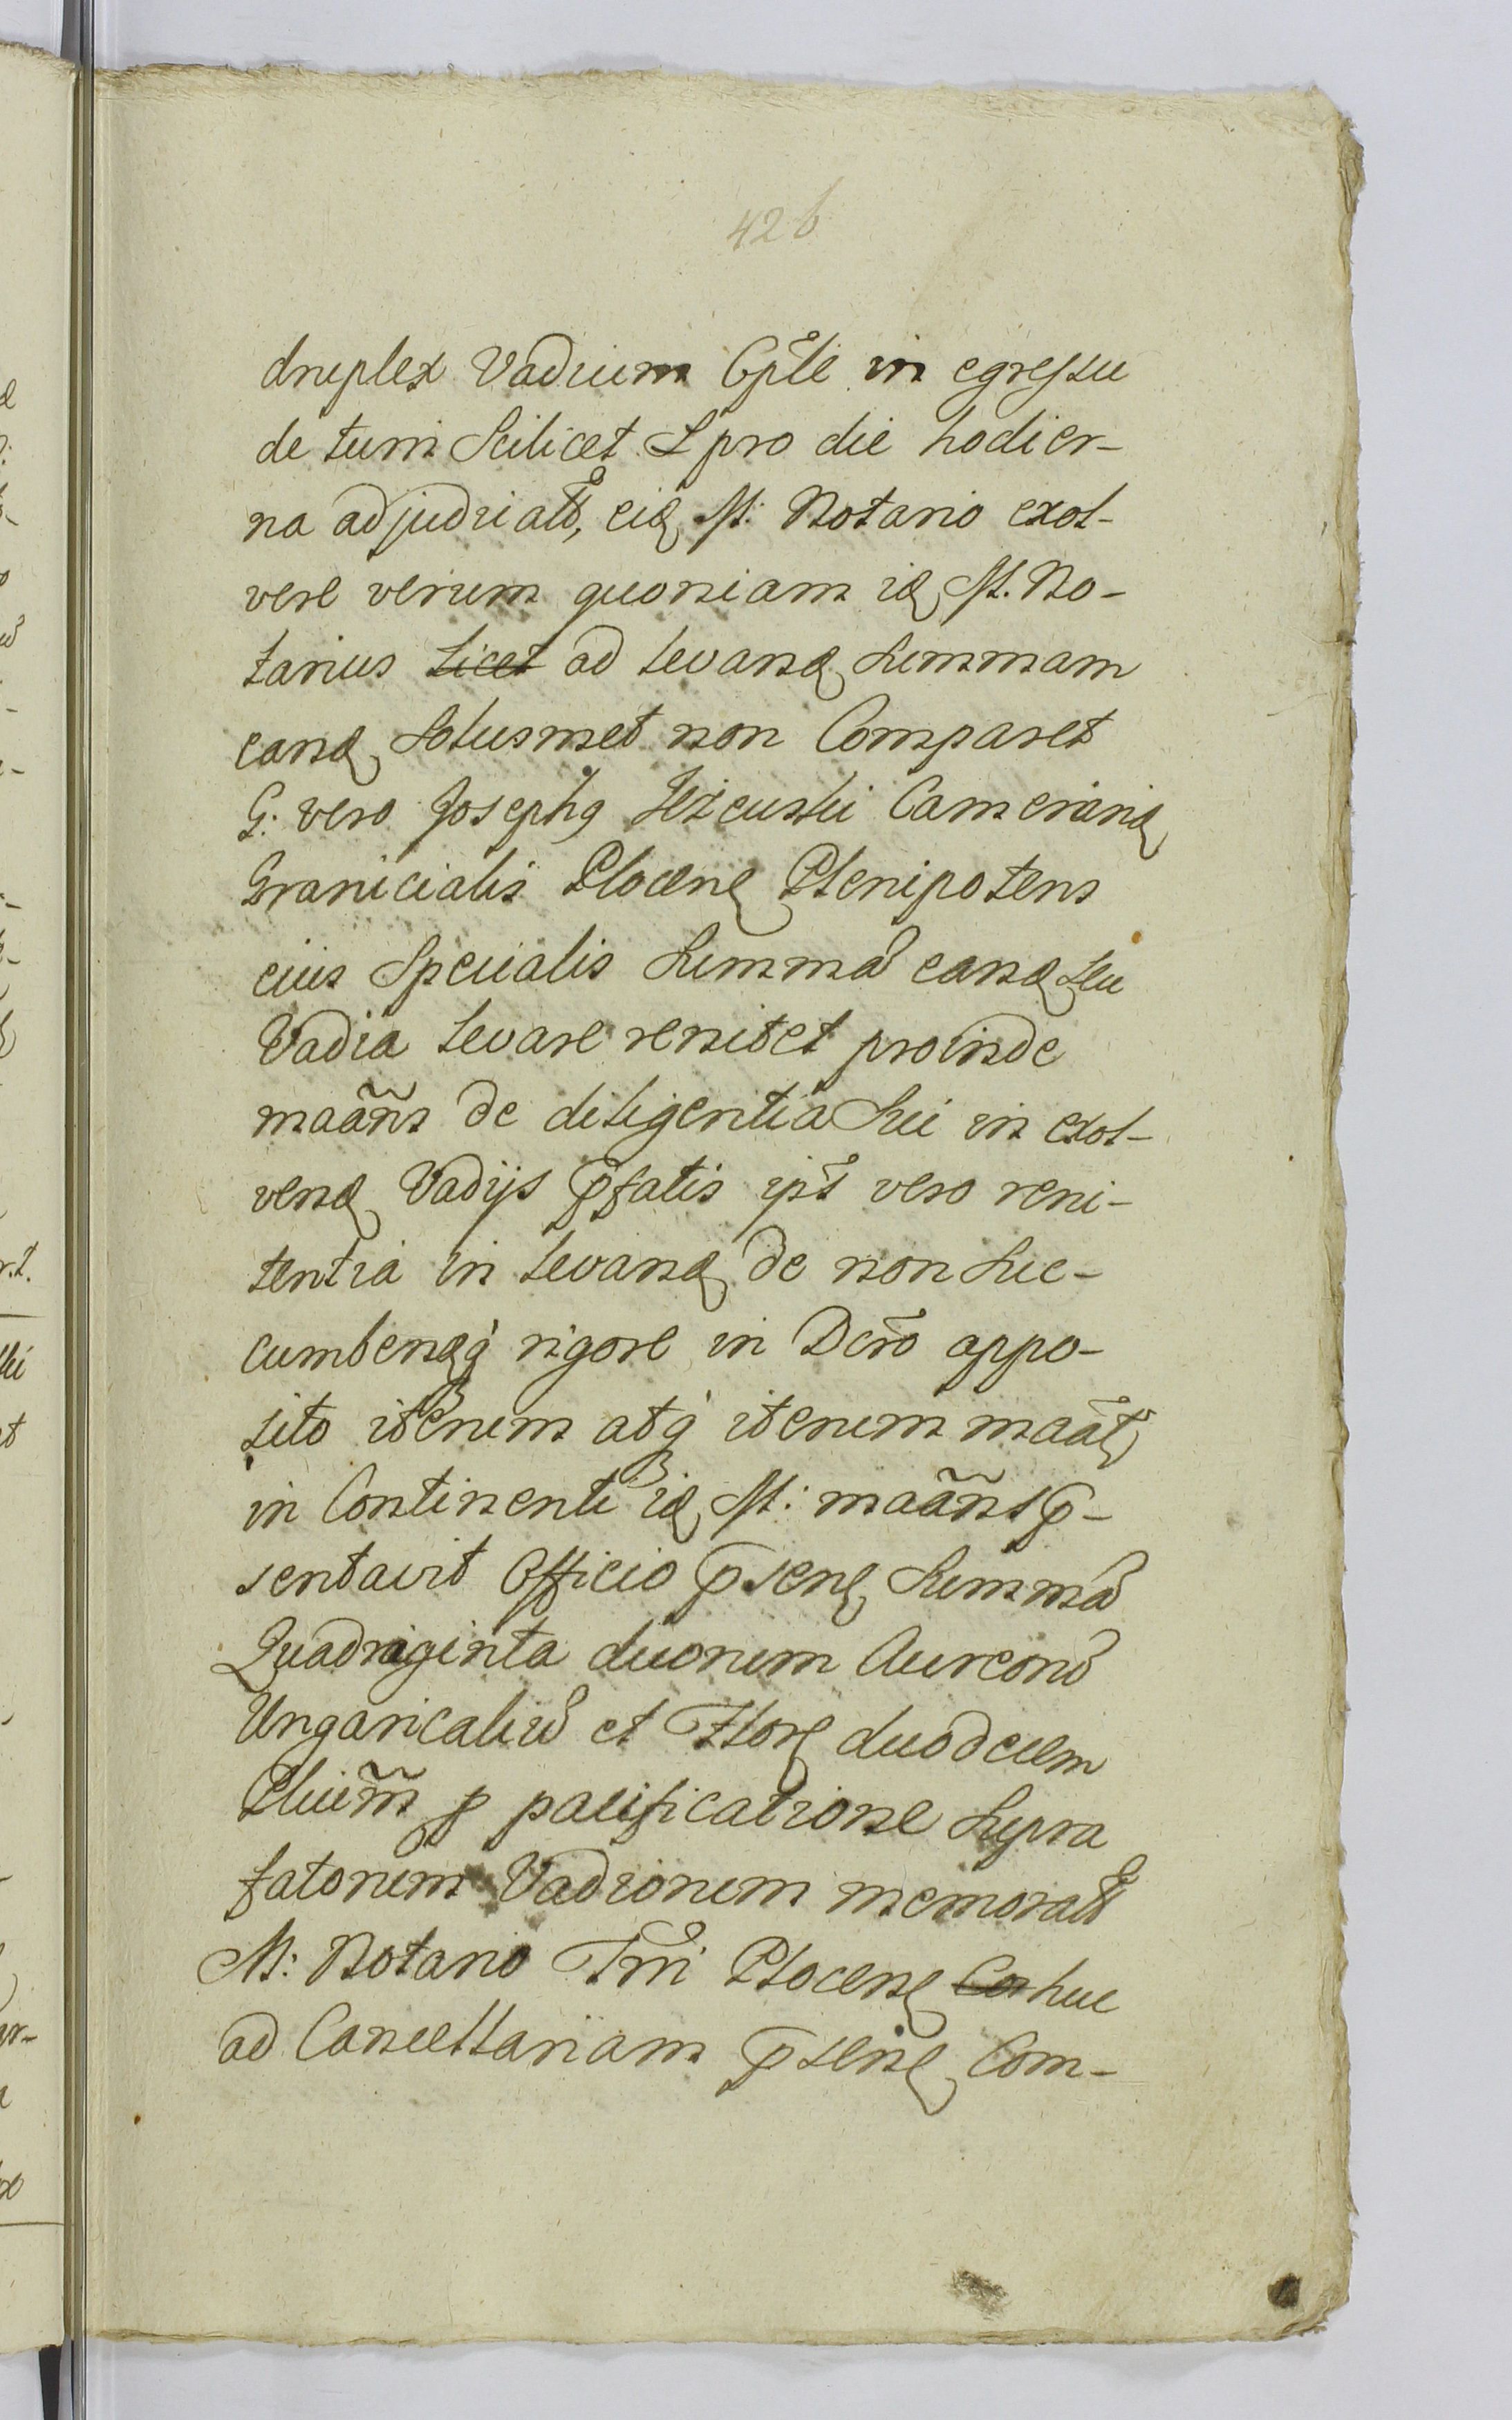 426
druplex Vadium Cptle in egressu
de tum Scilicet & pro die hodier-
na adjudicatũ, eiđ M: Notario exol-
vere verum quoniam iđ M. No-
tarius licet ad levanđ Summam
eanđ Solusmet non Comparet
G: vero Josephg Jezewski Camerariq
Granicialis Plocenę Plenipotens
eius Specialis Summã eanđ seu
Vadia levare renitet proinde
maãns de diligentia Sui in exol-
venđ Vadijs p̃fatis ips̃ vero reni-
tentia in levanđ de non Suc-
cumbenđq rigore in Dcro appo-
sito iterum atq iterum maãt
in Continenti iđ M: maãns p̃-
sentavit Officio p̃senę Summã
Quadraginta duorum Aureorũ
Ungaricaliũ et Florę duodecim
Pluim̃ p pacificatione Supra
fatorum Vadiorum memoratũ
M: Notario Tr̃ri Plocenę huc
ad Cancellariam p̃senę Com-